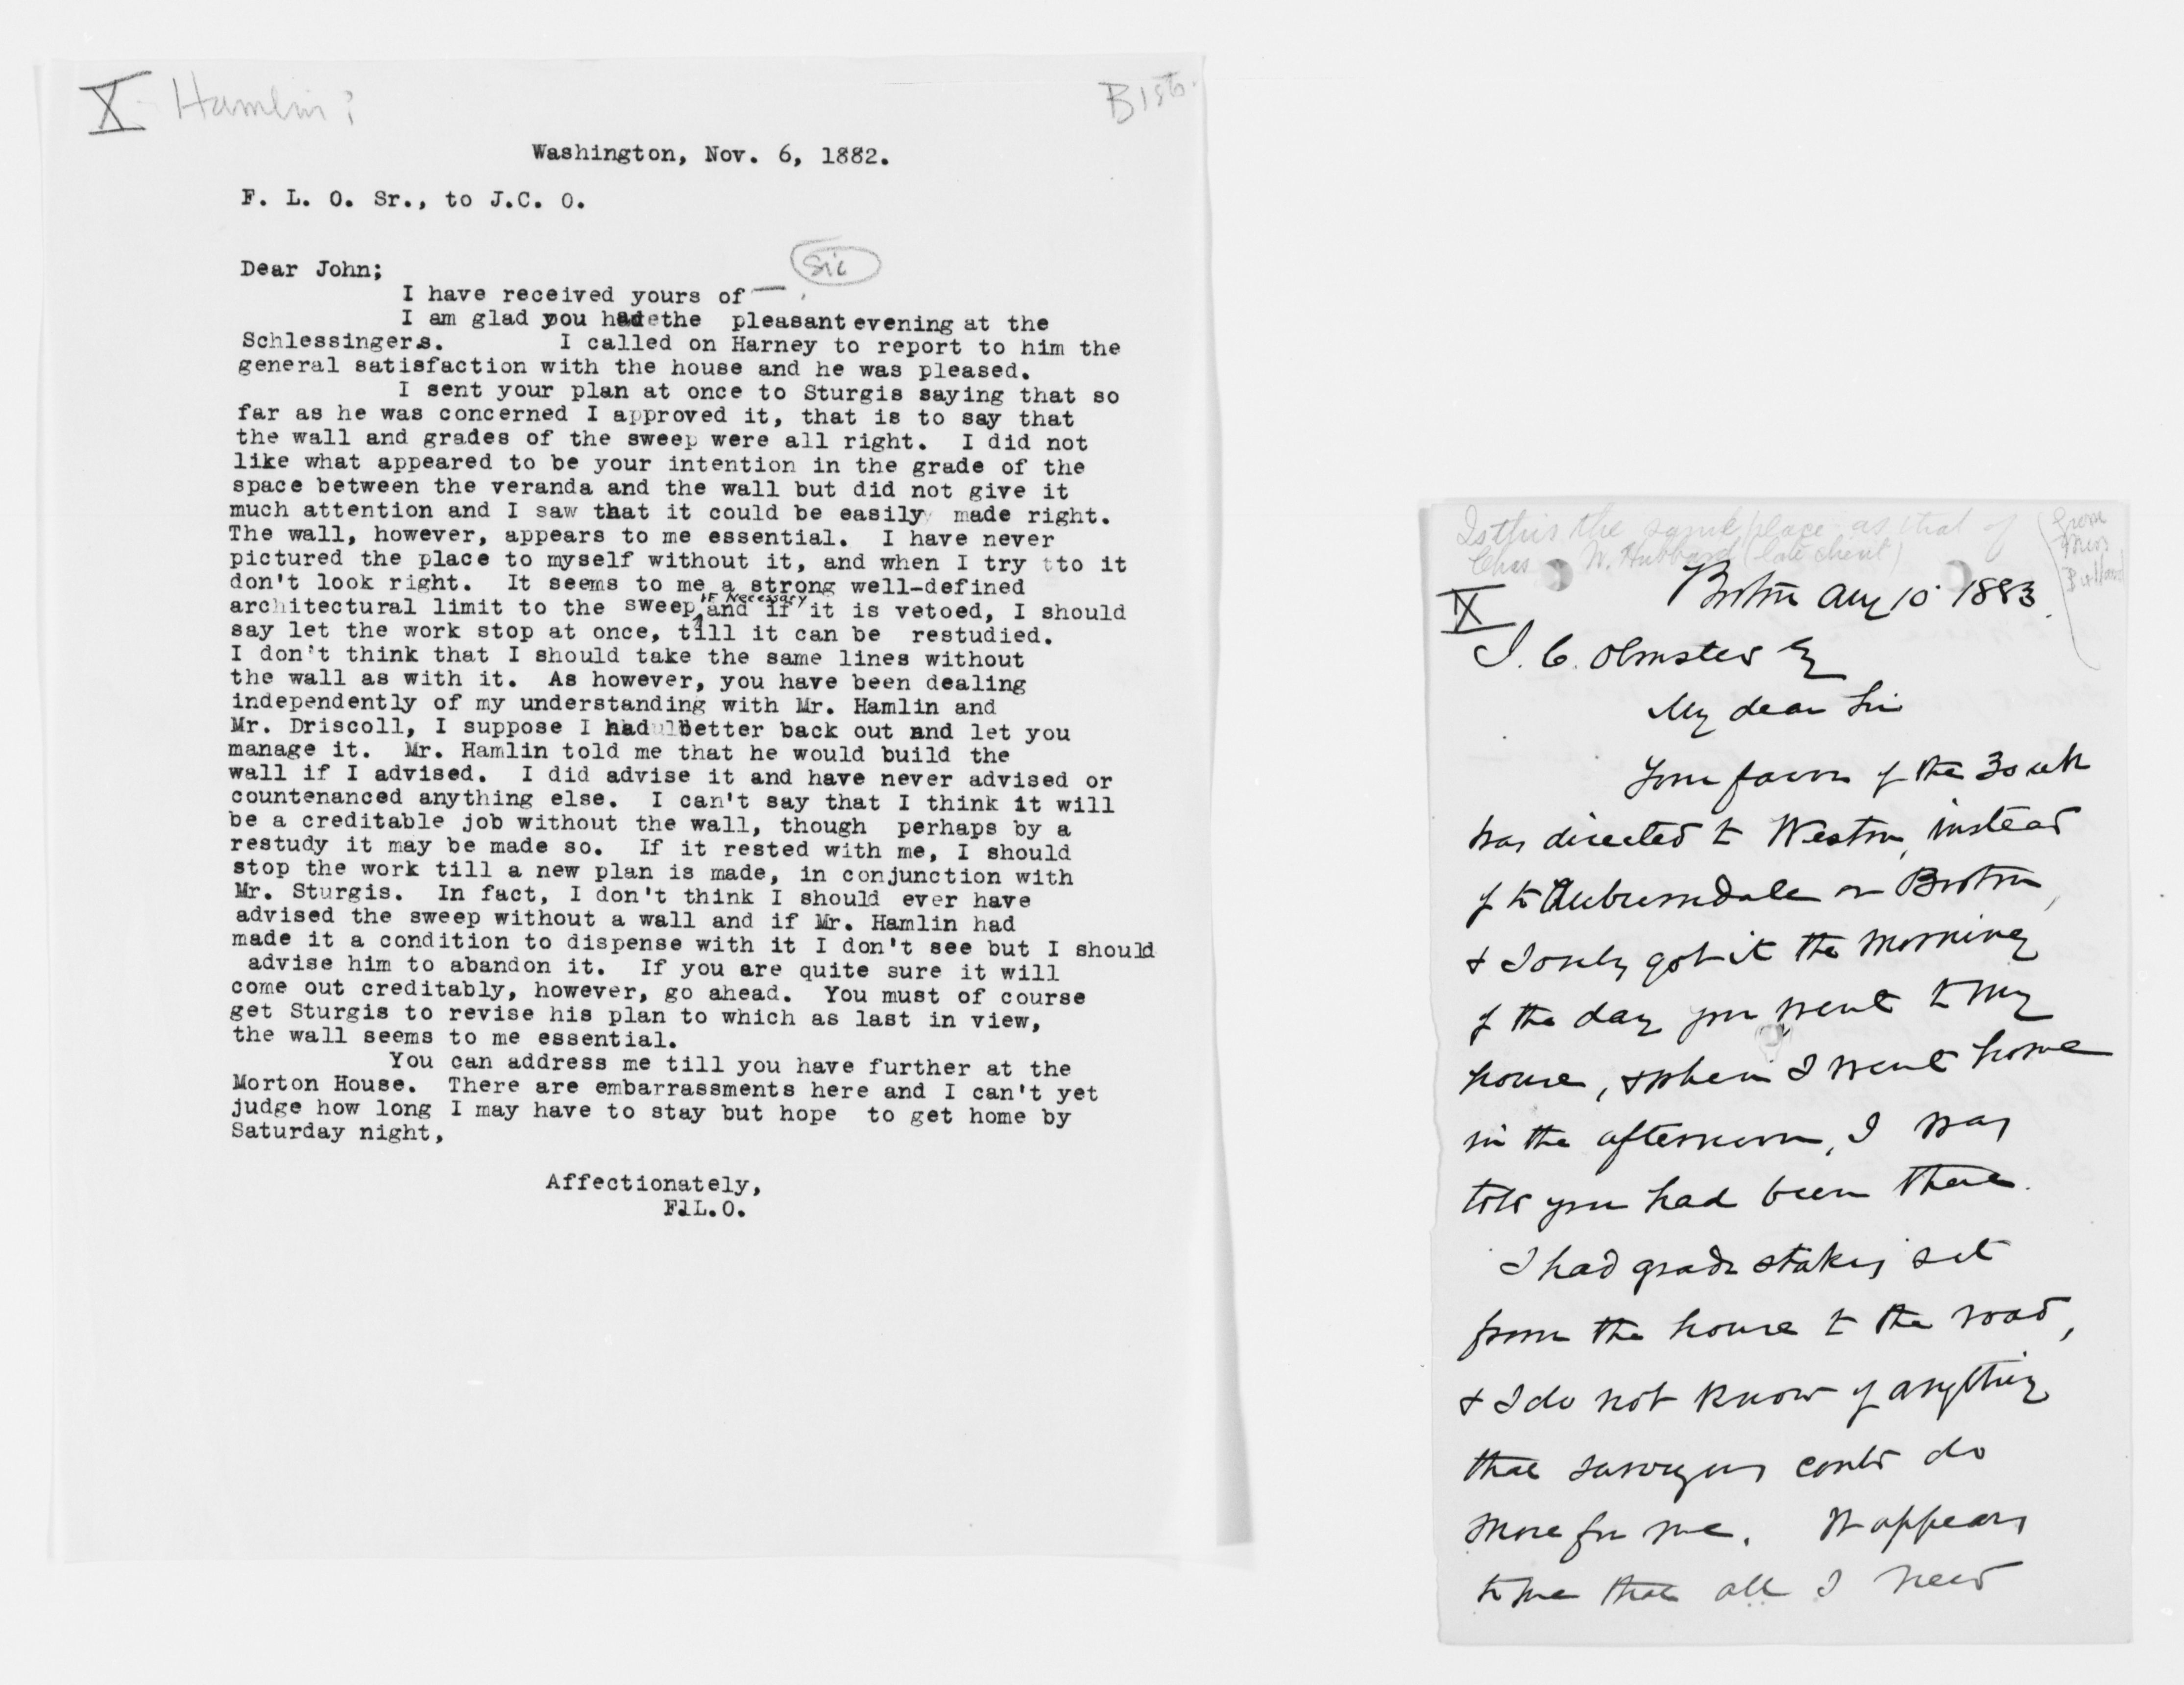 X Hamlin?
Washington, Nov. 6, 1882.
F. L. O. Sr., to J.C. O.
Sic
Dear John;
I have received yours of — .
I am glad you had the pleasant evening at the
Schlessingers. I called on Harney to report to him the
general satisfaction with the house and he was pleased.
I sent your plan at once to Sturgis saying that so
far as he was concerned I approved it, that is to say that
the wall and grades of the sweep were all right. I did not
like what appeared to be your intention in the grade of the
space between the veranda and the wall but did not give it
much attention and I saw that it could be easily made right.
The wall, however, appears to me essential. I have never
pictured the place to myself without it, and when I try tto it
don't look right. It seems to me a strong well-defined
if Necessary
architectural limit to the sweep and if it is vetoed, I should
say let the work stop at once, till it can be restudied.
I don't think that I should take the same lines without
the wall as with it. As however, you have been dealing
independently of my understanding with Mr. Hamlin and
Mr. Driscoll, I suppose I had better back out and let you
manage it. Mr. Hamlin told me that he would build the
wall if I advised. I did advise it and have never advised or
countenanced anything else. I can't say that I think it will
be a creditable job without the wall, though perhaps by a
restudy it may be made so. If it rested with me, I should
stop the work till a new plan is made, in conjunction with
Mr. Sturgis. In fact, I don't think I should ever have
advised the sweep without a wall and if Mr. Hamlin had
made it a condition to dispense with it I don't see but I should
advise him to abandon it. If you are quite sure it will
come out creditably, however, go ahead. You must of course
get Sturgis to revise his plan to which as last in view,
the wall seems to me essential.
You can address me till you have further at the
Morton House. There are embarrassments here and I can't yet
judge how long I may have to stay but hope to get home by
Saturday night,
Affectionately,
F.L.O.
Is this the same place as that of
Chas W. Hubbard (late client)
from
Miss
Bullard
X
Boston Aug 10 1883
J. C. Olmsted Esq
My dear Sir
Your favor of the 30 ult
was directed to Weston, instead
of to Auburndale or Boston,
& I only got it the morning
of the day you went to my
house, & when I went home
in the afternoon, I was
told you had been there.
I had grade stakes set
from the house to the road,
& I do not know of anything
that surveyors could do
more for me. It appears
to me that all I need